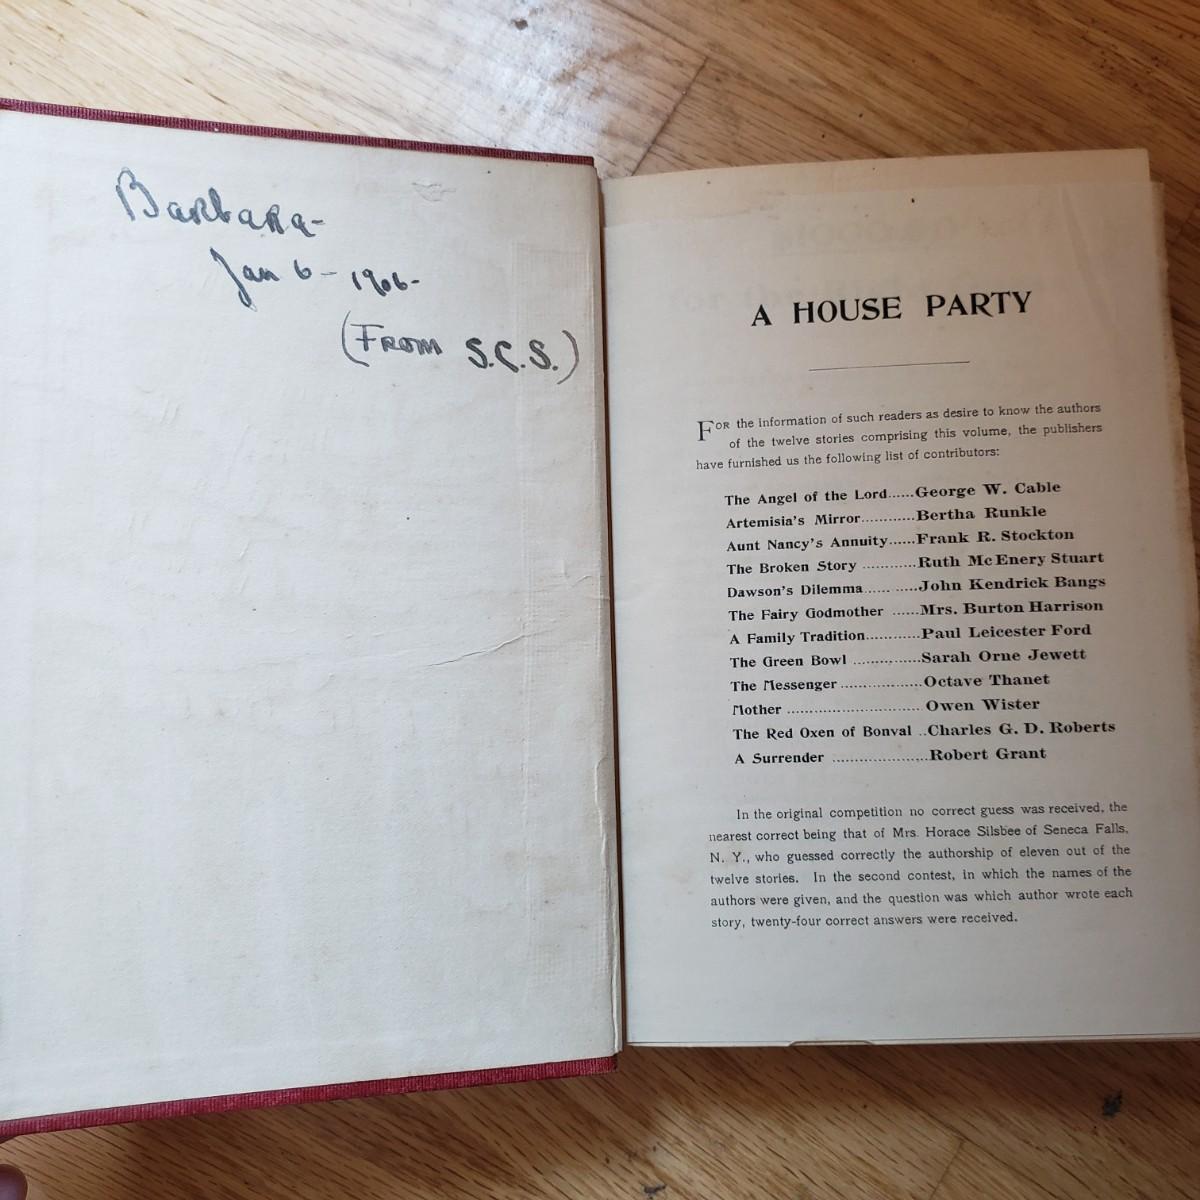 Barbara-
Jan 6 - 1906-
(From S.C.S.)
A HOUSE PARTY
FOR the information of such readers as desire to know the authors
of the twelve stories comprising this volume, the publishers
have furnished us the following list of contributors:
The Angel of the Lord......George W. Cable
Artemisia's Mirror............Bertha Runkle
Aunt Nancy's Annuity......Frank R. Stockton
The Broken Story ............Ruth McEnery Stuart
Dawson's Dilemma...... .....John Kendrick Bangs
The Fairy Godmother ......Mrs. Burton Harrison
A Family Tradition............Paul Leicester Ford
The Green Bowl ...............Sarah Orne Jewett
The Messenger ..................Octave Thanet
Mother ............................. Owen Wister
The Red Oxen of Bonval ..Charles G. D. Roberts
A Surrender .....................Robert Grant
In the original competition no correct guess was received, the
nearest correct being that of Mrs. Horace Silsbee of Seneca Falls,
N. Y., who guessed correctly the authorship of eleven out of the
twelve stories. In the second contest, in which the names of the
authors were given, and the question was which author wrote each
story, twenty-four correct answers were received.